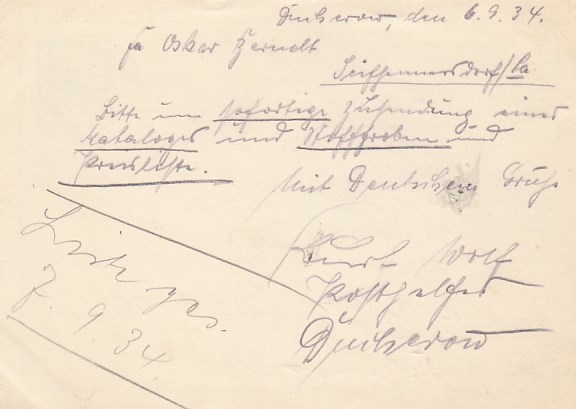 Ducherow, den 6.9.34.
Fa Oskar Herndt
Seifhennersdorf/Sa
Bitte um sofortige Zusendung eines
Kataloges und Stoffproben und
Preisliste.
Mit Deutschem Gruß
Kurt Wolf
Posthelfer
Ducherow
Liste ges.
7.9.34.